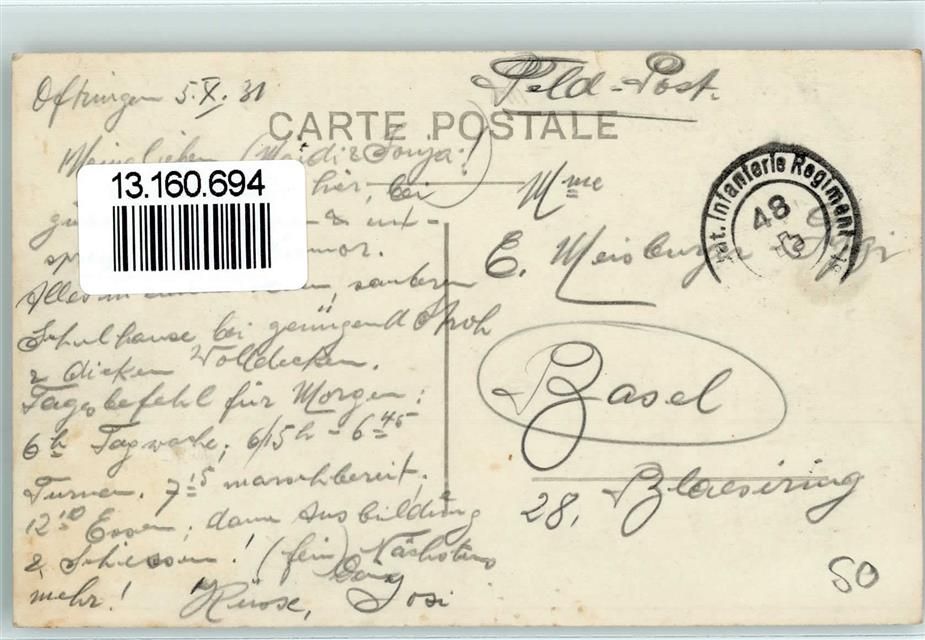 Oftringen 5.X.31
Feld-Post.
CARTE POSTALE
Meine Lieben (Heidi & Sonja!)
13.160.694
hier, bei
Mme
E. Meisburger
Bat. Infanterie Regiment
48
Alles in sauberen
Schulhause bei genügend Stroh
& dicken Wolldecken.
Tagesbefehl für Morgen:
6h Tagwache; 6/15h - 6 45
Turnen. 7 15 marschbereit,
12 10 Essen, dann Ausbildung
& Schiessen! (fein) Nächstens
mehr! Küsse, Josi
Basel
28, Blaesiring
50